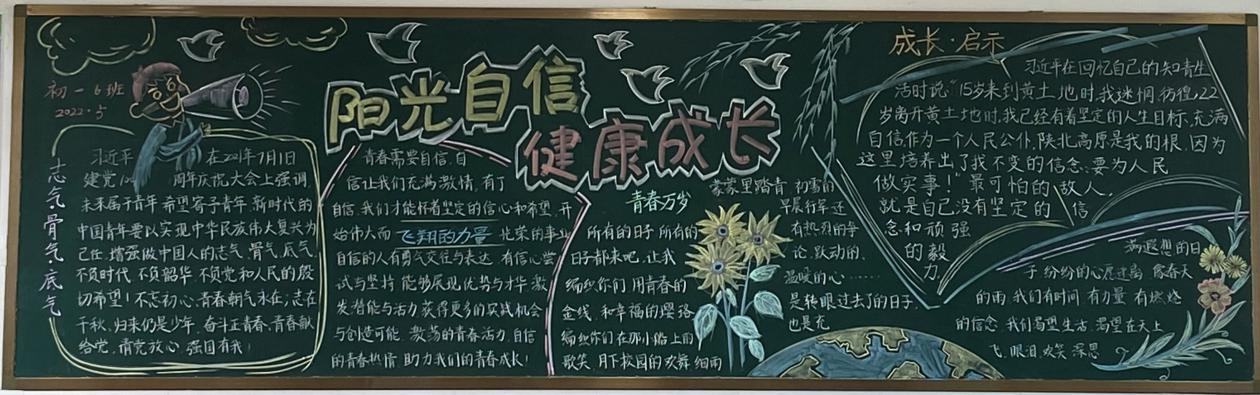 初一6班
2022.5
志气骨气底气
习近平 在2021年7月1日
建党10 周年庆祝大会上强调,
未来属于青年,希望寄予青年,新时代的
中国青年要以实现中华民族伟大复兴为
己任,增强做中国人的志气、骨气、底气
不负时代,不负韶华,不负党和人民的殷
切希望!不忘初心,青春朝气永在;志在
千秋,归来仍是少年,奋斗正青春,青春献
给党,请党放心,强国有我!
阳光自信
健康成长
青春需要自信,自
信让我们充满激情,有了
自信,我们才能怀着坚定的信心和希望,开
始伟大而 飞翔的力量 光荣的事业
自信的人有勇气交往与表达,有信心尝
试与坚持,能够展现优势与才华,激
发潜能与活力,获得更多的实践机会
与创造可能,激荡的青春活力,自信
的青春热情,助力我们的青春成长!
青春万岁
所有的日子,所有的
日子都来吧,让我
编织你们,用青春的
金线,和幸福的璎珞
编织你们,在那小船上的
歌笑,月下校园的欢舞,细雨
蒙蒙里踏青,初雪的
早晨行军,还
有热烈的争
论,跃动的、
温暖的心……
是转眼过去了的日子,
也是充
满遐想的日
子,纷纷的心愿迷离,像春天
的雨,我们有时间,有力量,有燃烧
的信念,我们渴望生活,渴望在天上
飞,眼泪,欢笑,深思
成长·启示
习近平在回忆自己的知青生
活时说“15岁来到黄土地时,我迷惘,彷徨,22
岁离开黄土地时,我已经有着坚定的人生目标,充满
自信,作为一个人民公仆,陕北高原是我的根,因为
这里培养出了我不变的信念:要为人民
做实事!”最可怕的敌人,
就是自己没有坚定的信
念和顽强
的毅
力